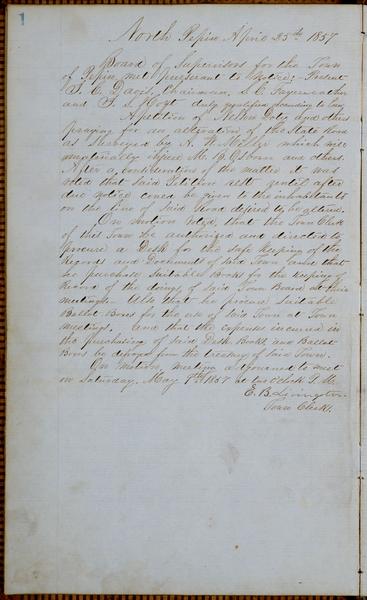 1
North Pepin April 25th 1857
Board of Supervisors for the Town
of Pepin met pursuant to notice, Present
S. C. Davis, Chairman, S. C. Fayerweather
and F. S. Hoyt duly qualified according to law
A petition of Nelson and others
praying for an alteration of the State Road
as Surveyed by A. W. which was
M. B. Osborn and others.
After a consideration of the matter it was
voted that said Petition rest until after
due notice could be given to the inhabitants
on the line of said Road desired to be altered.
On motion Voted, that the Town Clerk
of this Town be authorized and directed to
procure a Desk for the safe keeping of the
Records and Documents of said Town and that
he purchase suitable Books for the keeping of
Record of the doings of said Town Board at their
meetings- Also that he procure suitable
Ballot Boxes for the use of said Town at Town
meetings. and that the expenses incurred in
the purchasing of said Desk Books and Ballot
Boxes be defrayed from the treasury of said Town.
On Motion, meeting adjourned to meet
on Saturday, May 9th 1857 at two o'clock P. M.
E. B. Livington
Town Clerk.